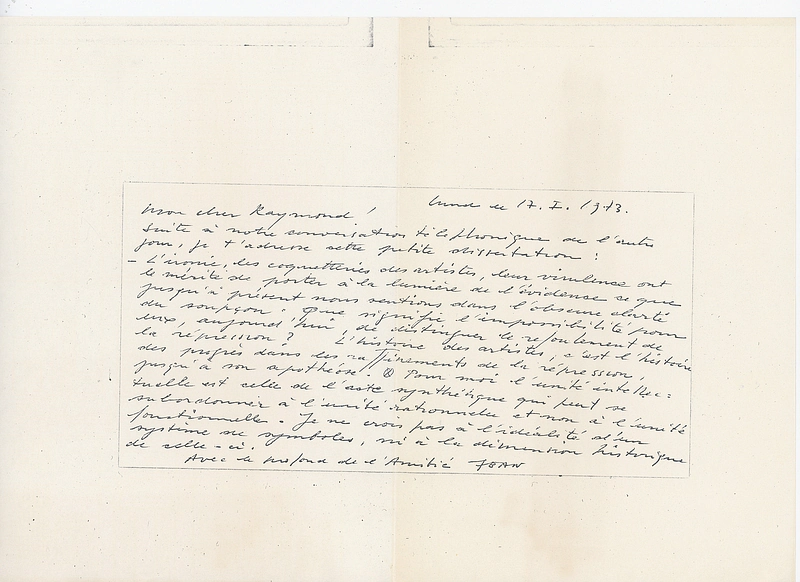 Lund le 17. I. 1973.
Mon cher Raymond !
Suite à notre conversation téléphonique de l'autre
jour, je t'adresse cette petite dissertation :
- L'ironie, les coquetteries des artistes, leur virulence ont
le mérite de porter à la lumière de l'évidence ce que
jusqu'à présent nous sentions dans l'obscure clarté
du soupçon. Que signifie l'impossibilité pour
eux, aujourd'hui, de distinguer le refoulement de
la répression ? L'histoire des artistes, c'est l'histoire
des progrès dans les raffinements de la répression,
jusqu'à son apothéose. Pour moi l'unité intellec=
tuelle est celle de l'acte synthétique qui peut se
subordonner à l'unité rationnelle et non à l'unité
fonctionnelle. Je ne crois pas à l'idéalité d'un
système de symboles, ni à la dimension historique
de celle-ci.
Avec le profond de l'Amitié JEAN